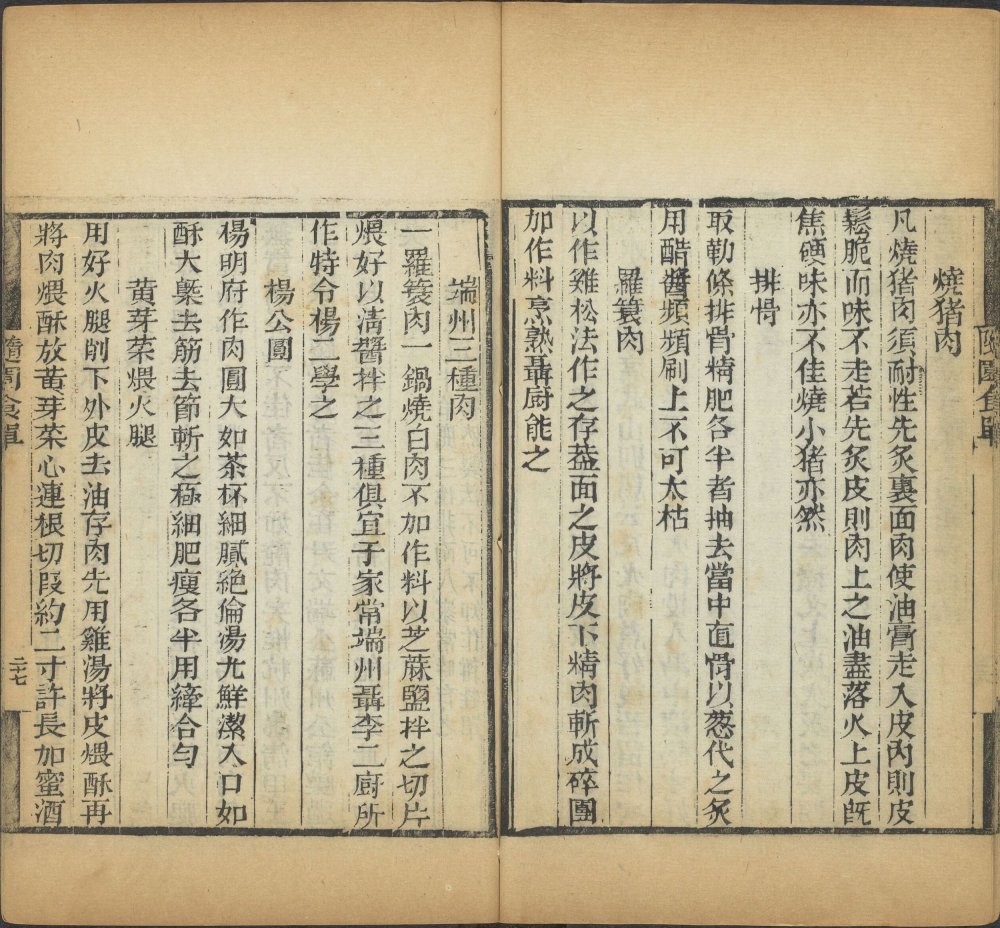 隨園食單
燒猪肉
凡燒猪肉須耐性先炙裏面肉使油膏走入皮內則皮
鬆脆而味不走若先炙皮則肉上之油盡落火上皮既
焦硬味亦不佳燒小猪亦然
排骨
取勒條排骨精肥各半者抽去當中直骨以葱代之炙
用醋醬頻頻刷上不可太枯
羅簑肉
以作雞松法作之存葢面之皮將皮下精肉斬成碎團
加作料烹熟聶厨能之
端州三種肉
一羅簑肉一鍋燒白肉不加作料以芝蔴鹽拌之切片
煨好以淸醬拌之三種俱宜于家常端州聶李二厨所
作特令楊二學之
楊公圓
楊明府作肉圓大如茶杯細膩絶倫湯尤鮮潔入口如
酥大槩去筋去節斬之極細肥瘦各半用縴合勻
黄芽菜煨火腿
用好火腿削下外皮去油存肉先用雞湯將皮煨酥再
將肉煨酥放黄芽菜心連根切叚約二寸許長加蜜酒
隨園食單
二七